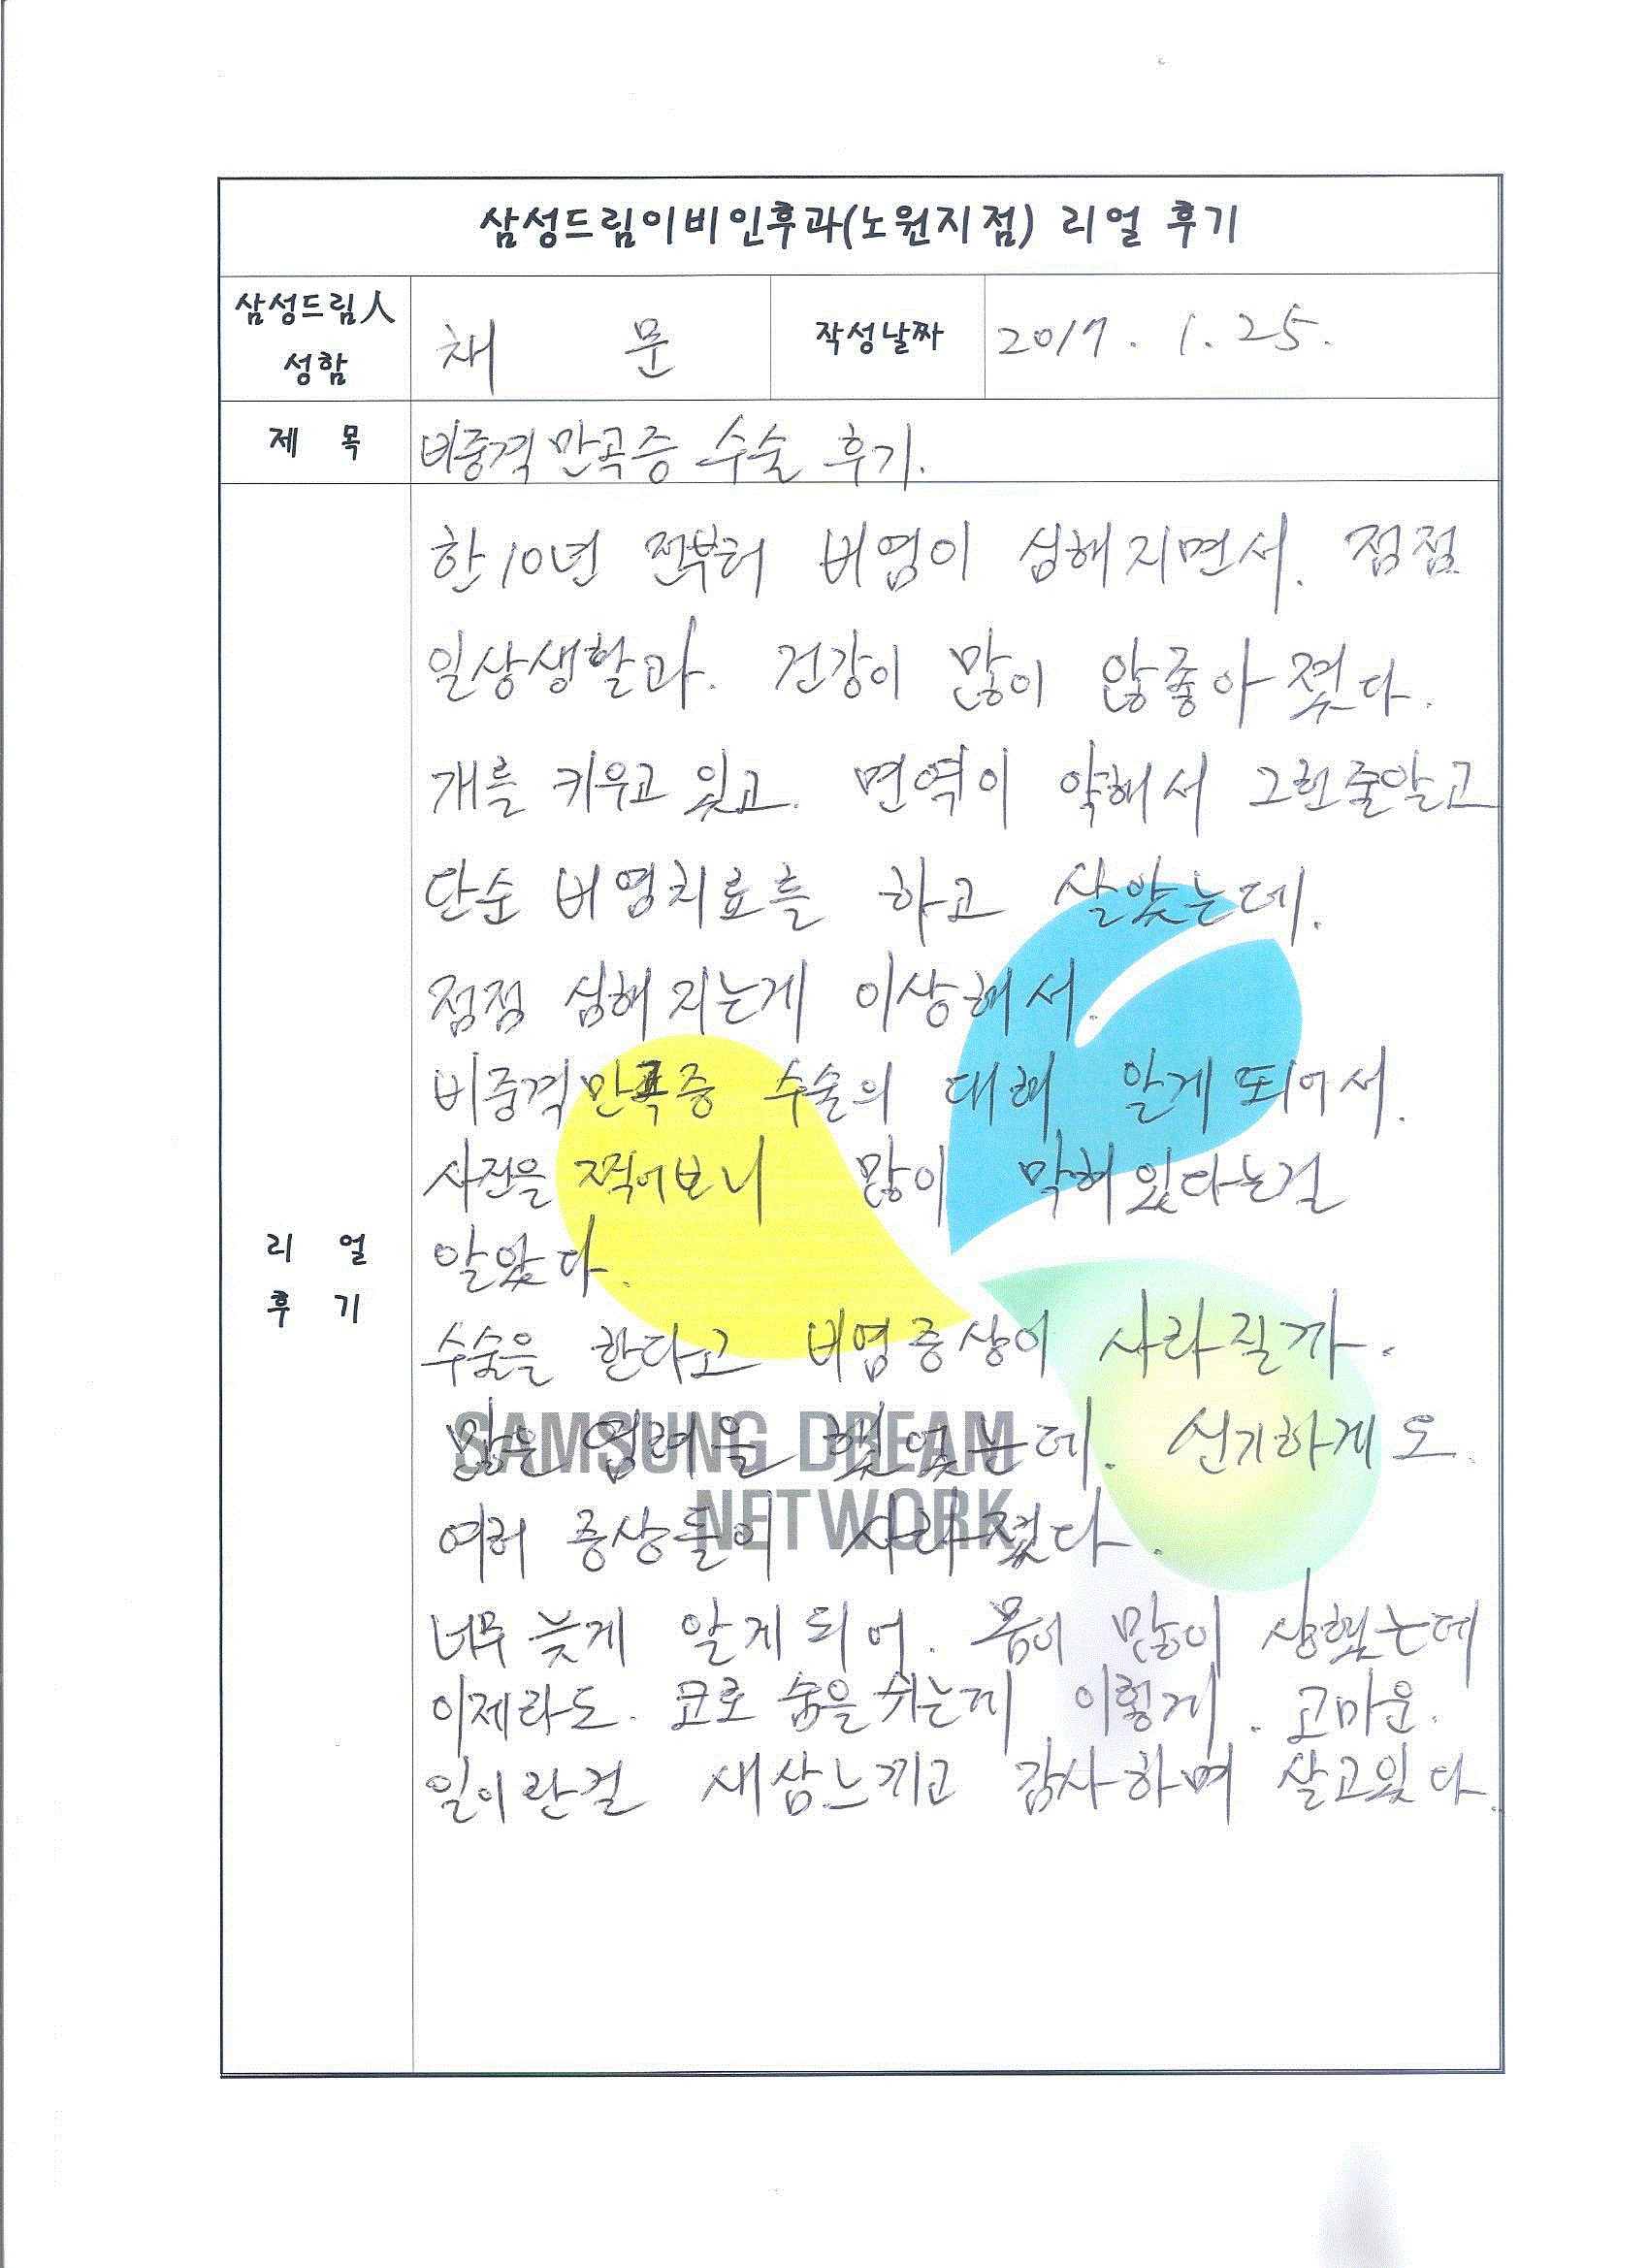 삼성드림이비인후과(노원지점) 리얼 후기
삼성드림人 성함
채 문
작성날짜
2017. 1. 25.
제 목
비중격만곡증 수술 후기.
리 얼
후 기
한10년 전부터 비염이 심해지면서. 점점
일상생활과. 건강이 많이 않좋아졌다.
개를 키우고 있고. 면역이 약해서 그런줄알고
단순 비염치료를 하고 살았는데.
점점 심해지는게 이상해서.
비중격만곡증 수술의 대해 알게되어서.
사진을 찍어보니 많이 막혀있다는걸
알았다.
수술을 한다고 비염증상이 사라질까.
많은 염려을 했었는데. 신기하게도.
여러 증상들이 사라졌다.
너무 늦게 알게되어. 몸이 많이 상했는데
이제라도. 코로 숨을쉬는게 이렇게. 고마운.
일이란걸 새삼느끼고 감사하며 살고있다.
SAMSUNG DREAM
NETWORK